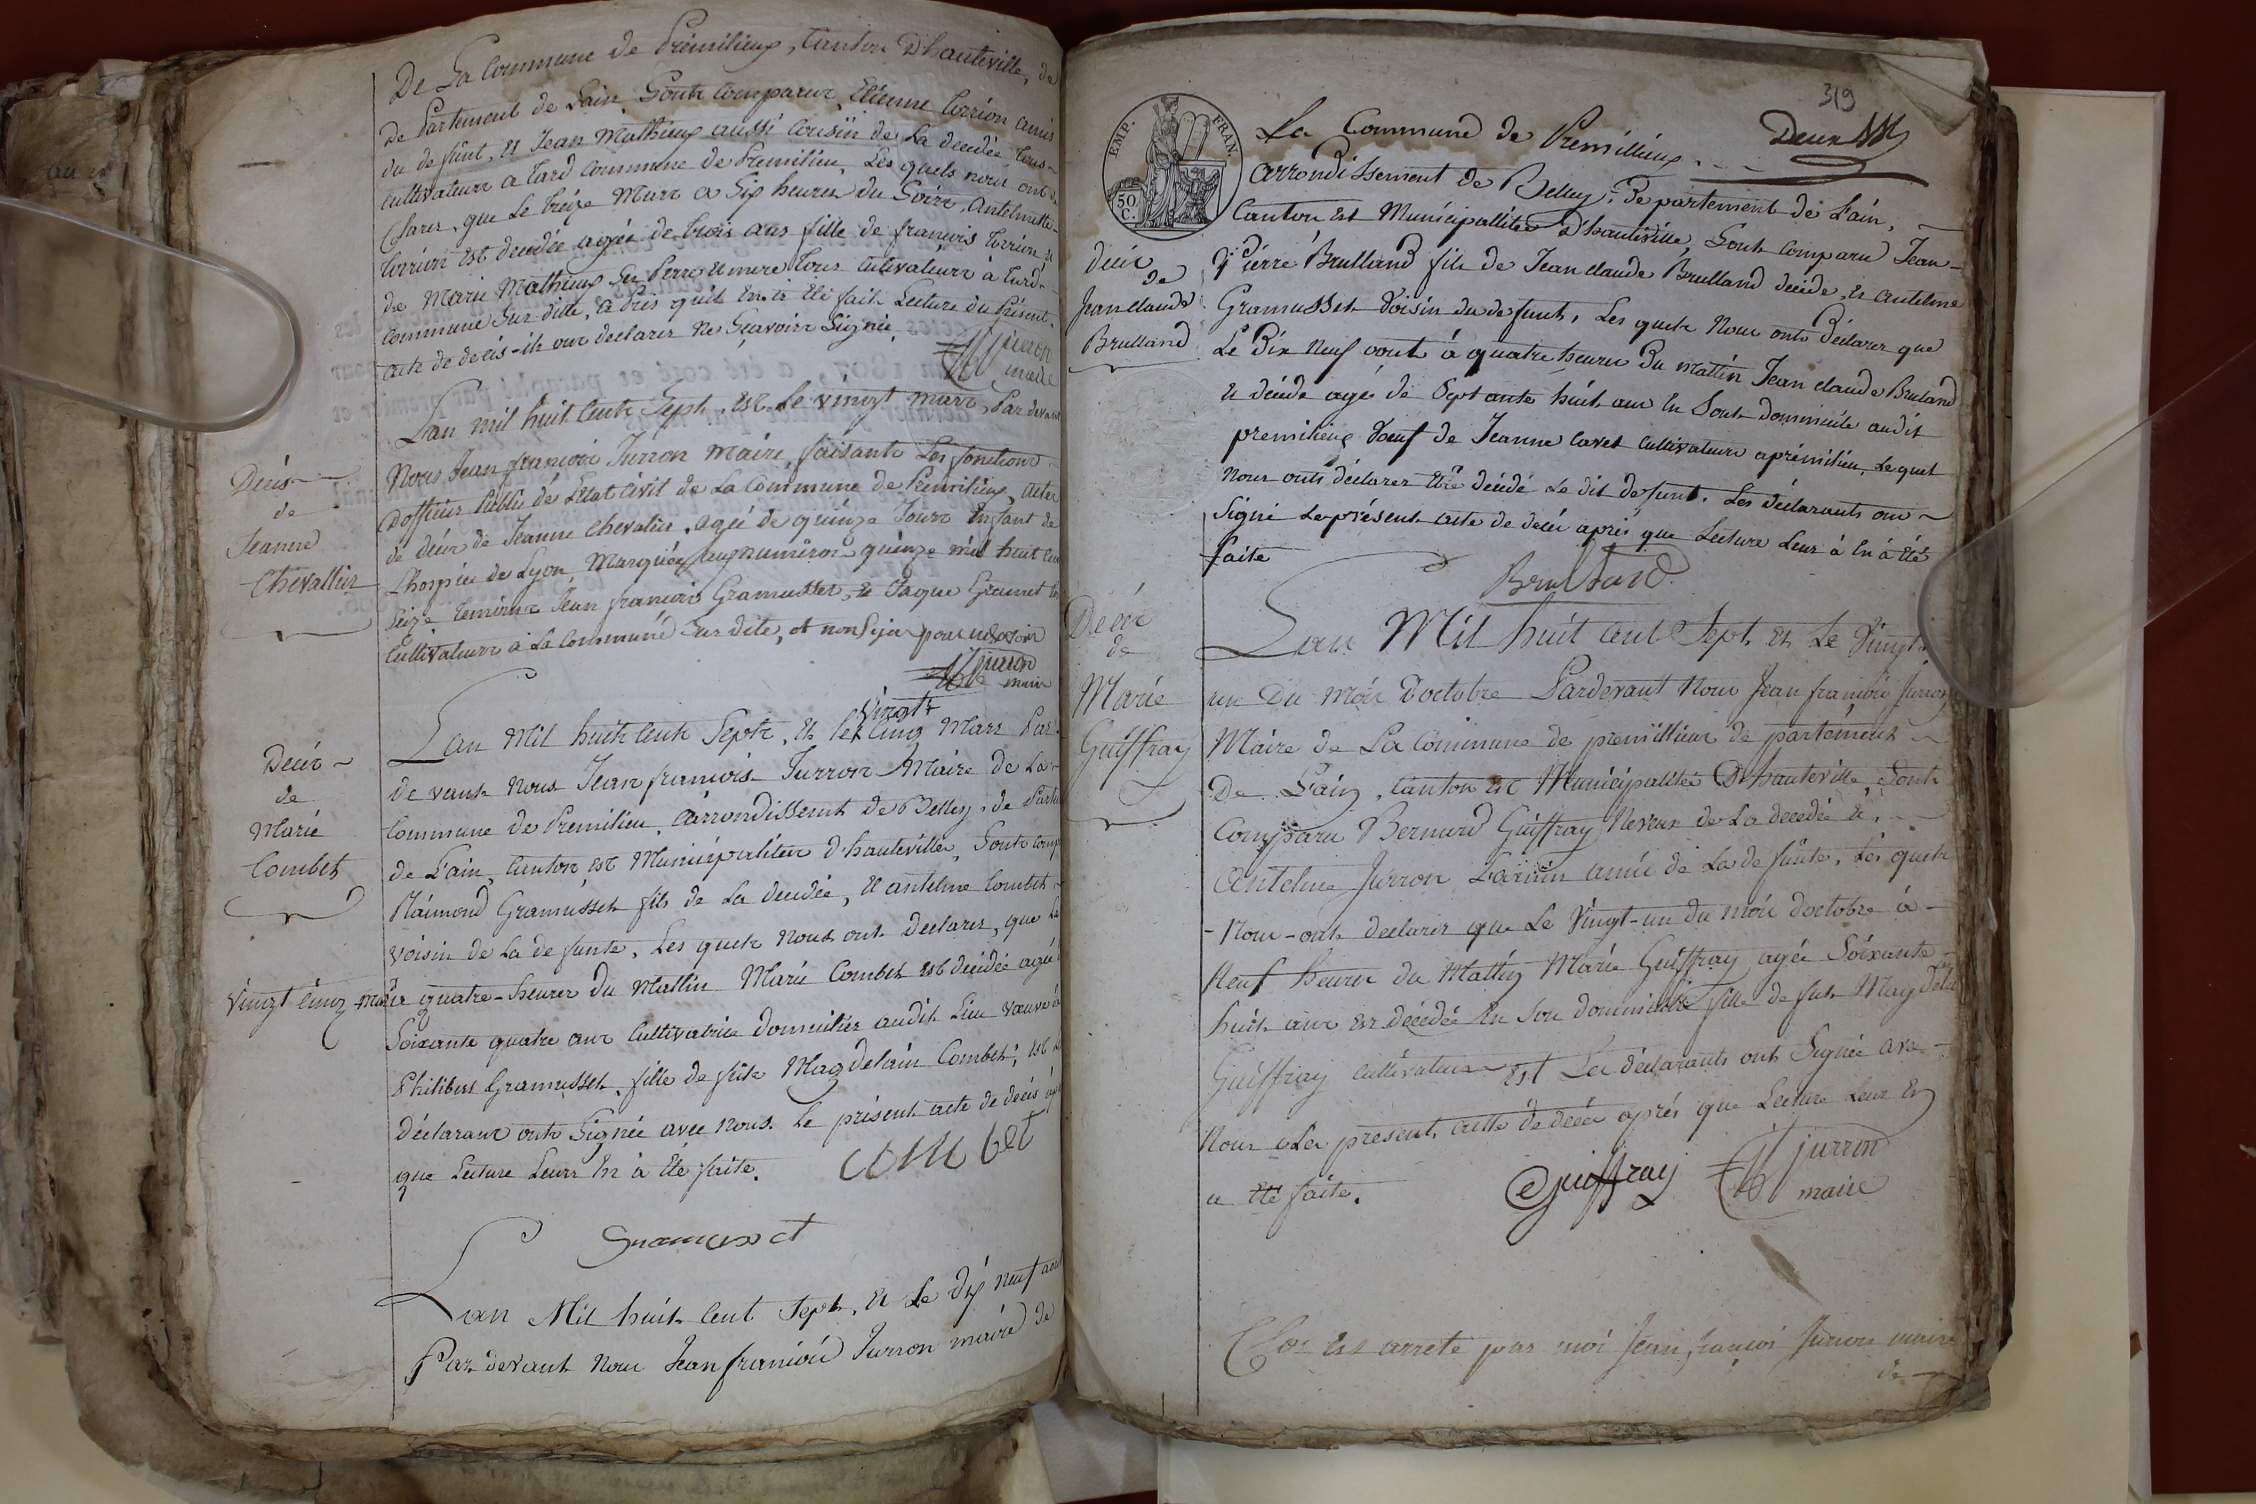 De La Commune de Prémilieux, Canton D'hauteville, de
Partement de Lain Sonts Comparus, Etienne Corrion amis
du defünt, et Jean Mathieux aussi Cousin de La decedée tous
Cultivateurs a tard Commune de Premilieu, Les quels nous ont dé
Clarés, que Le treize Mars a Six heures du Soire, Antelmette
Corrion est decedée agée de trois ans fille de françois Corrion, et
de Marie Mathieux Ses Perre et mere tous Cultivateurs à tard
Commune Sus ditte, a Pris quil en à été fait Lecture du Présent
acte de decis ils ont declarés Ne Sçavoire Signée
Jurron
maire
Décis
de
Jeanne
Chevallier
Lan mil huit Cents Sept, est Le vingt mars Par devant
Nous Jean françois Jurron Maire, faisants Les fonctions
Dofficier Public de Létat Civil de La Commune de Prémilieux, acte
de décés de Jeanne Chevalier, agée de quinze Jours Enfant de
Lhospice de Lyon Marquée au numéros quinze mil huit Cents
Seize temoins Jean françois Gramusset, et Jaque
Cultivateurs à La Communé Sus dite, et non Signer pour ne savoir
Jurron
maire
Decés
de
Marie
Combet
Lan Mil huit Cents Septs, et le vingts Cinq Mars Par
de vants Nous Jean françois Jurron Maire de La
Commune de Premilieu, arrondissement de Belley, de Parte
de Lain, Canton est Municipalitée d'hauteville, Sont Comp
Raimond Gramusset fils de La decedée, et antelme Combet
voisin de La defunte, Les quels nous ont declarés, que Le
vingt Cinq mars à quatre heures du Mattin Marie Combet est decedée agée
Soixante quatre ans Cultivatrice domicilier audit Lieu veuve à
Philibert Gramusset, fille de füts Magdelain Combet, est Les
déclarant onts Signée avec nous Le présent acte de decés ap
que Lecture Leurs En à Eté faite.
Combet
Gramusset
Lan Mil huit Cent Sept, et Le dix neuf aout
Par devant Nous Jean françois Jurron maire de
319
EMP. FRAN.
50. C.
Deux
La Commune de Prémillieux
arrondissement de Belley, Departement de Lain,
Canton est Municipallitée d'hauteville, Sont Comparu Jean
Decés
de
Jean Claude
Brulland
Pierre Brulland fils de Jean claude Brulland décédé, et antelme
Gramusset Voisin du defunts, Les quels Nous onts Déclarés que
Le Dix Neuf aout à quatre heures Du mattin Jean claude Bruland
et décédé agé de Sept ante huit ans En Sont dommicile audit
premilieux Vœuf de Jeanne Cavet Cultivateurs aprémilieu, Lequel
nous onts déclarer être décédé Le dit defunt. Les déclarants ont
Signé Le présent acte de decés aprés que Lecture Leur à En à été
faite
Brulland
Decés
de
Marie
Guiffray
Lan Mil huit Cent Sept, et Le Vingt
un Du mois D'octobre Pardevant Nous Jean françois Jurron
Maire de La Commune de premillieux de partement
De Lain, Canton est Municipalitée D'hauteville, Sont
Comparu Bernard Guiffray Neveux de La decedée et
Antelme Jurron Larmin amis de La defünte, Les quels
Nous onts declarer que Le Vingt-un du mois d'octobre à
Neuf heures du Mattin Marie Guiffray agée Soixante
huit ans est décédée En Son dommicille fille de futs Magdelain
Guiffray Cultivateurs est Les déclarants onts Signée avec
Nous Le présent acte de decés aprés que Lecture Leur En
a été faite.
Guiffray
Jurron
maire
Clos est arreté par moi Jean françoi Jurron maire
de